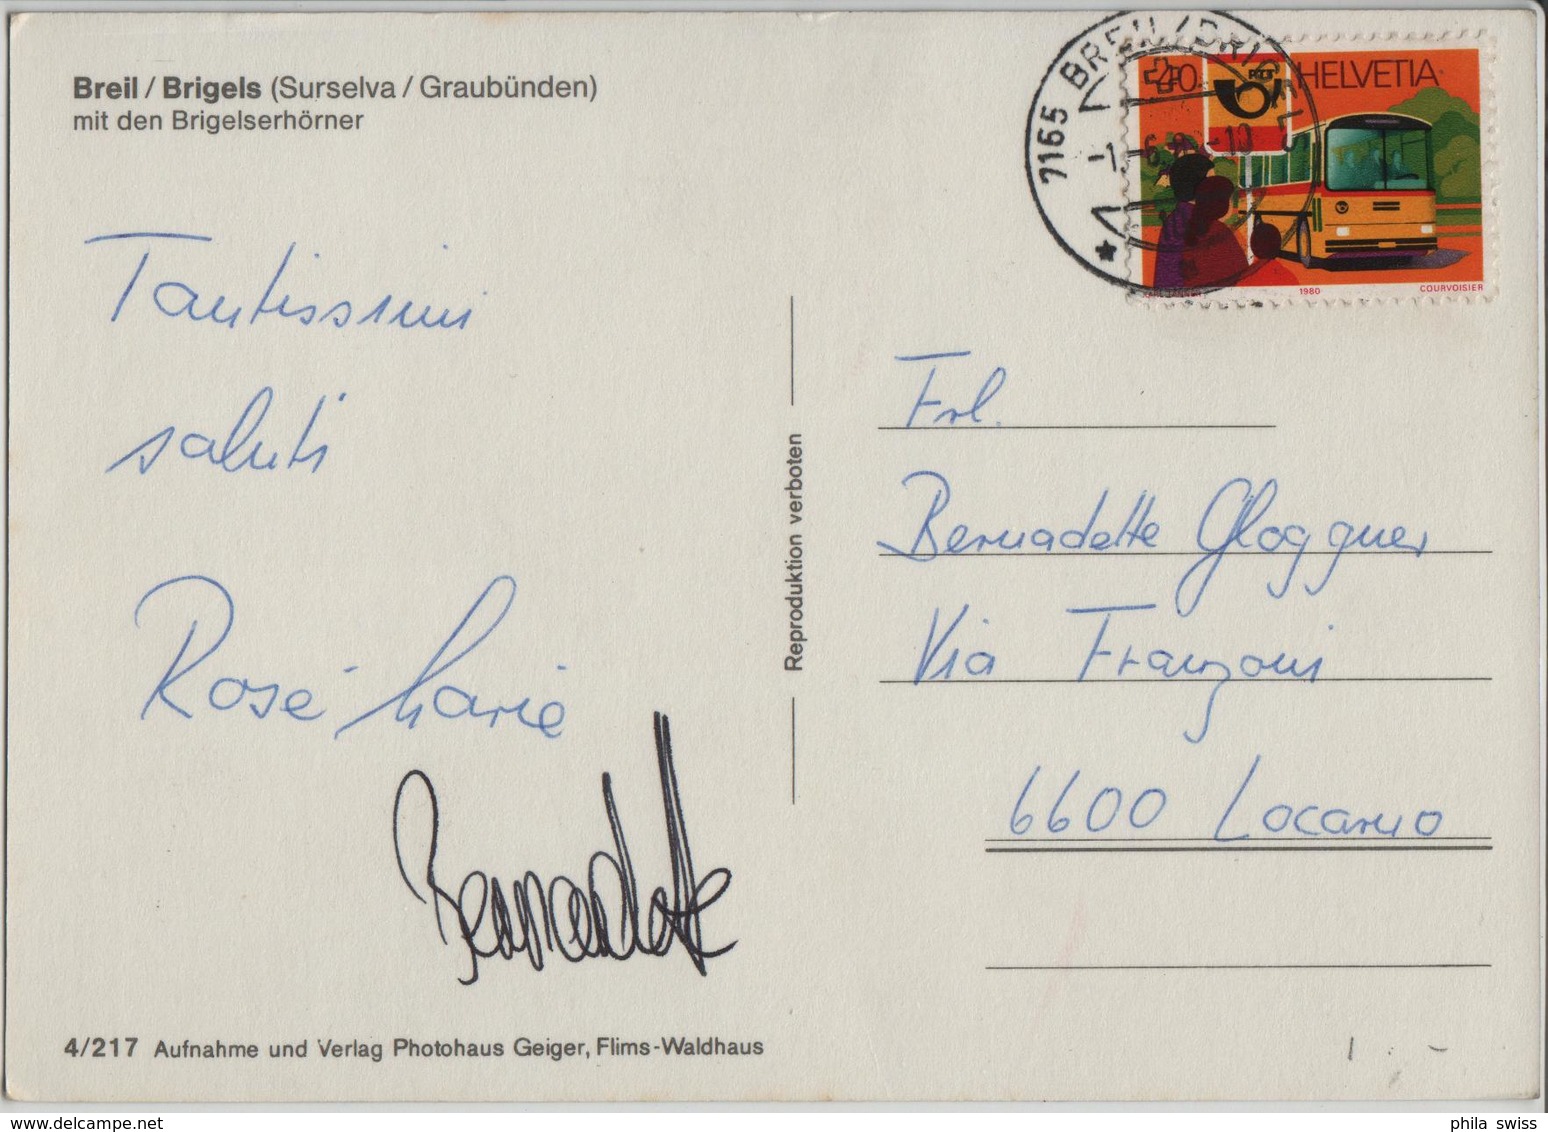 Breil / Brigels (Surselva / Graubünden)
mit den Brigelserhörner
7165 BREIL/BRIGELS
-1.-6.8 -10
40
PTT
HELVETIA
1980
COURVOISIER
Tantissimi
saluti
Rose Marie
Bernadette
Reproduktion verboten
Frl.
Bernadette Gloggner
Via Franzoni
6600 Locarno
4/217 Aufnahme und Verlag Photohaus Geiger, Flims-Waldhaus
www.delcampe.net
phila swiss